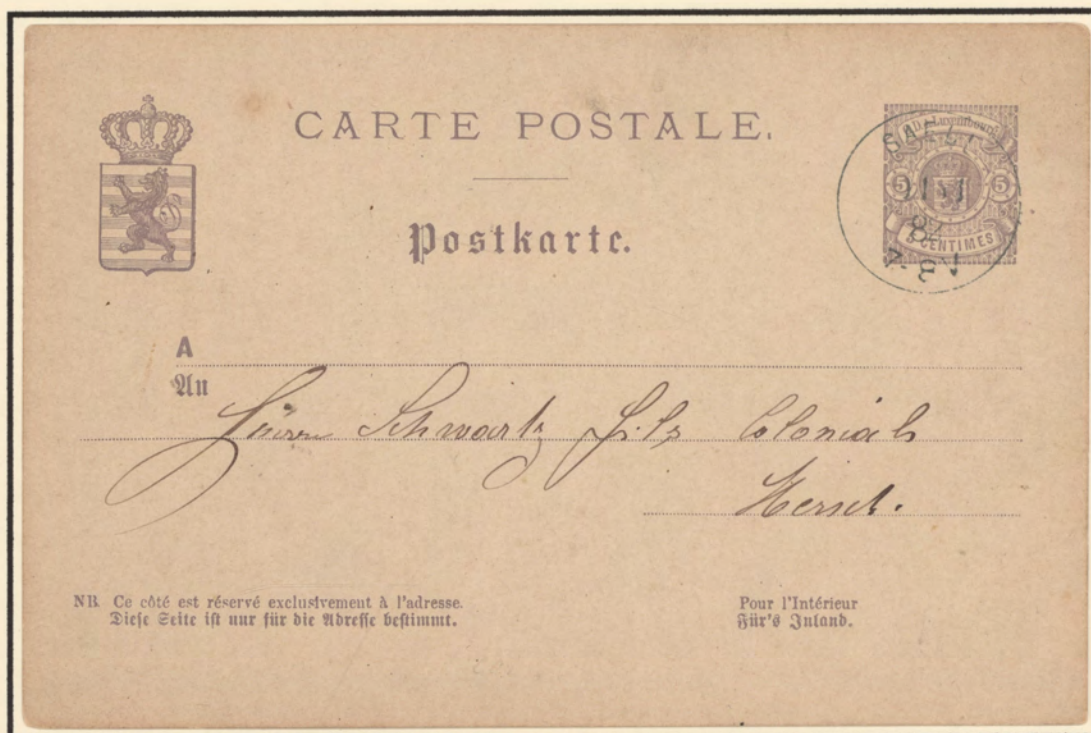 CARTE POSTALE.
Postkarte.
G.D. Luxembourg
5 5
5 CENTIMES
82
7-8V
A
An
Schwartz fils Colonials
Mersch.
NB. Ce côté est réservé exclusivement à l'adresse.
Diese Seite ist nur für die Adresse bestimmt.
Pour l'Intérieur
Für's Inland.